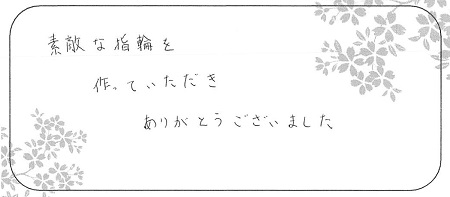 素敵な指輪を
作っていただき
ありがとうございました